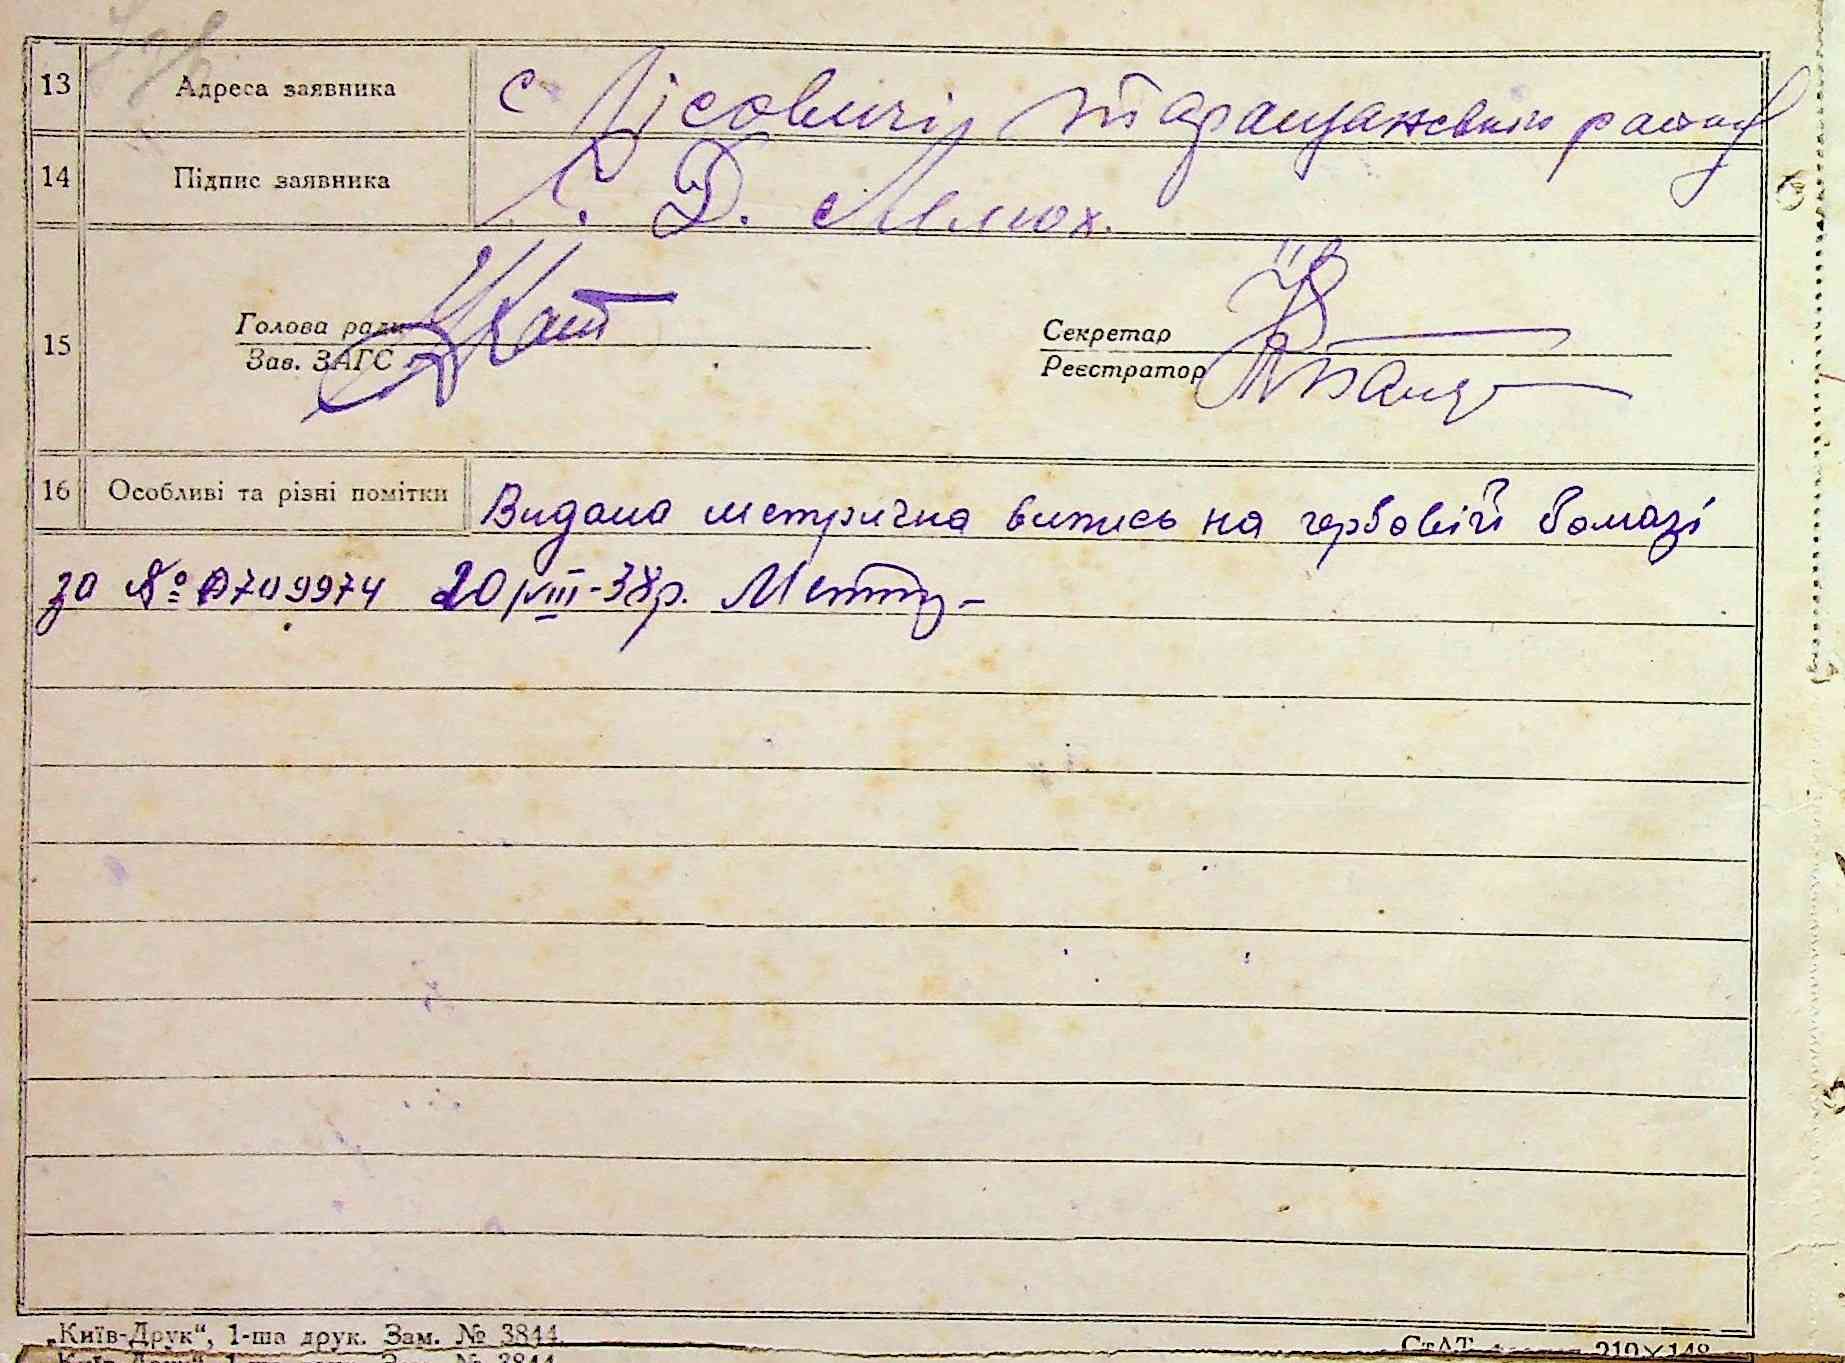 13 Адреса заявника с Лісовичі Таращанського району
14 Підпис заявника Д. Мелюх.
15 Голова ради Секретар
Зав. ЗАГС Реєстратор
16 Особливі та різні помітки Видана метрична випись на гербовій бомазі
за № 0709974 20/VIII-38р.
„Київ-Друк“, 1-ша друк. Зам. № 3844.
СтАТ 210×148